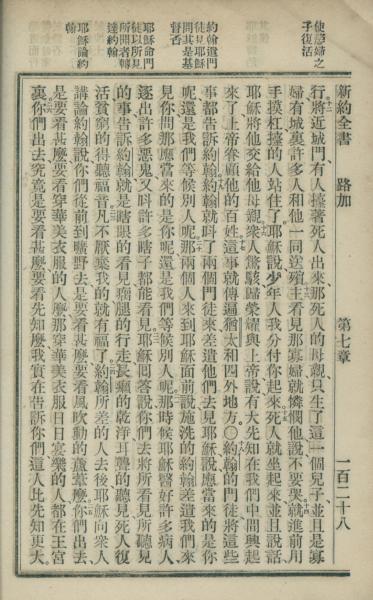 新約全書　路加　第七章　一百二十八
使寡婦之
子復活
約翰遣門
徒見耶穌
問其是基
督否
耶穌命門
徒以所見
所聞者轉
達約翰
耶穌論約
翰
行將近城門有人擡著死人出來那死人的母親只生了這一個兒子並且是寡
婦有城裏許多人和他一同送殯主看見那寡婦就憐憫他說不要哭就進前用
手摸杠擡的人站住了耶穌說少年人我分付你起來死人就坐起來並且說話
耶穌將他交給他母親衆人驚駭歸榮耀與上帝說有大先知在我們中間興起
來了上帝眷顧他的百姓這事就傳遍猶太和四外地方〇約翰的門徒將這些
事都告訴約翰約翰就呌了兩個門徒來差遣他們去見耶穌說應當來的是你
呢還是我們等候別人呢那兩個人來到耶穌面前說施洗的約翰差遣我們來
見你問那應當來的是你呢還是我們等候別人呢那時候耶穌醫好許多病人
逐出許多惡鬼又呌許多瞎子都能看見耶穌回答說你們去將所看見所聽見
的事告訴約翰就是瞎眼的看見瘸腿的行走長癩的乾淨耳聾的聽見死人復
活貧窮的得聽福音凡不厭棄我的就有福了約翰所差的人去後耶穌向衆人
講論約翰說你們從前到曠野去是要看甚麼要看風吹動的蘆葦麼你們出去
是要看甚麼要看穿華美衣服的人麼那穿華美衣服日日宴樂的人都在王宮
裏你們出去究竟是要看甚麼要看先知麼我實在告訴你們這人比先知更大